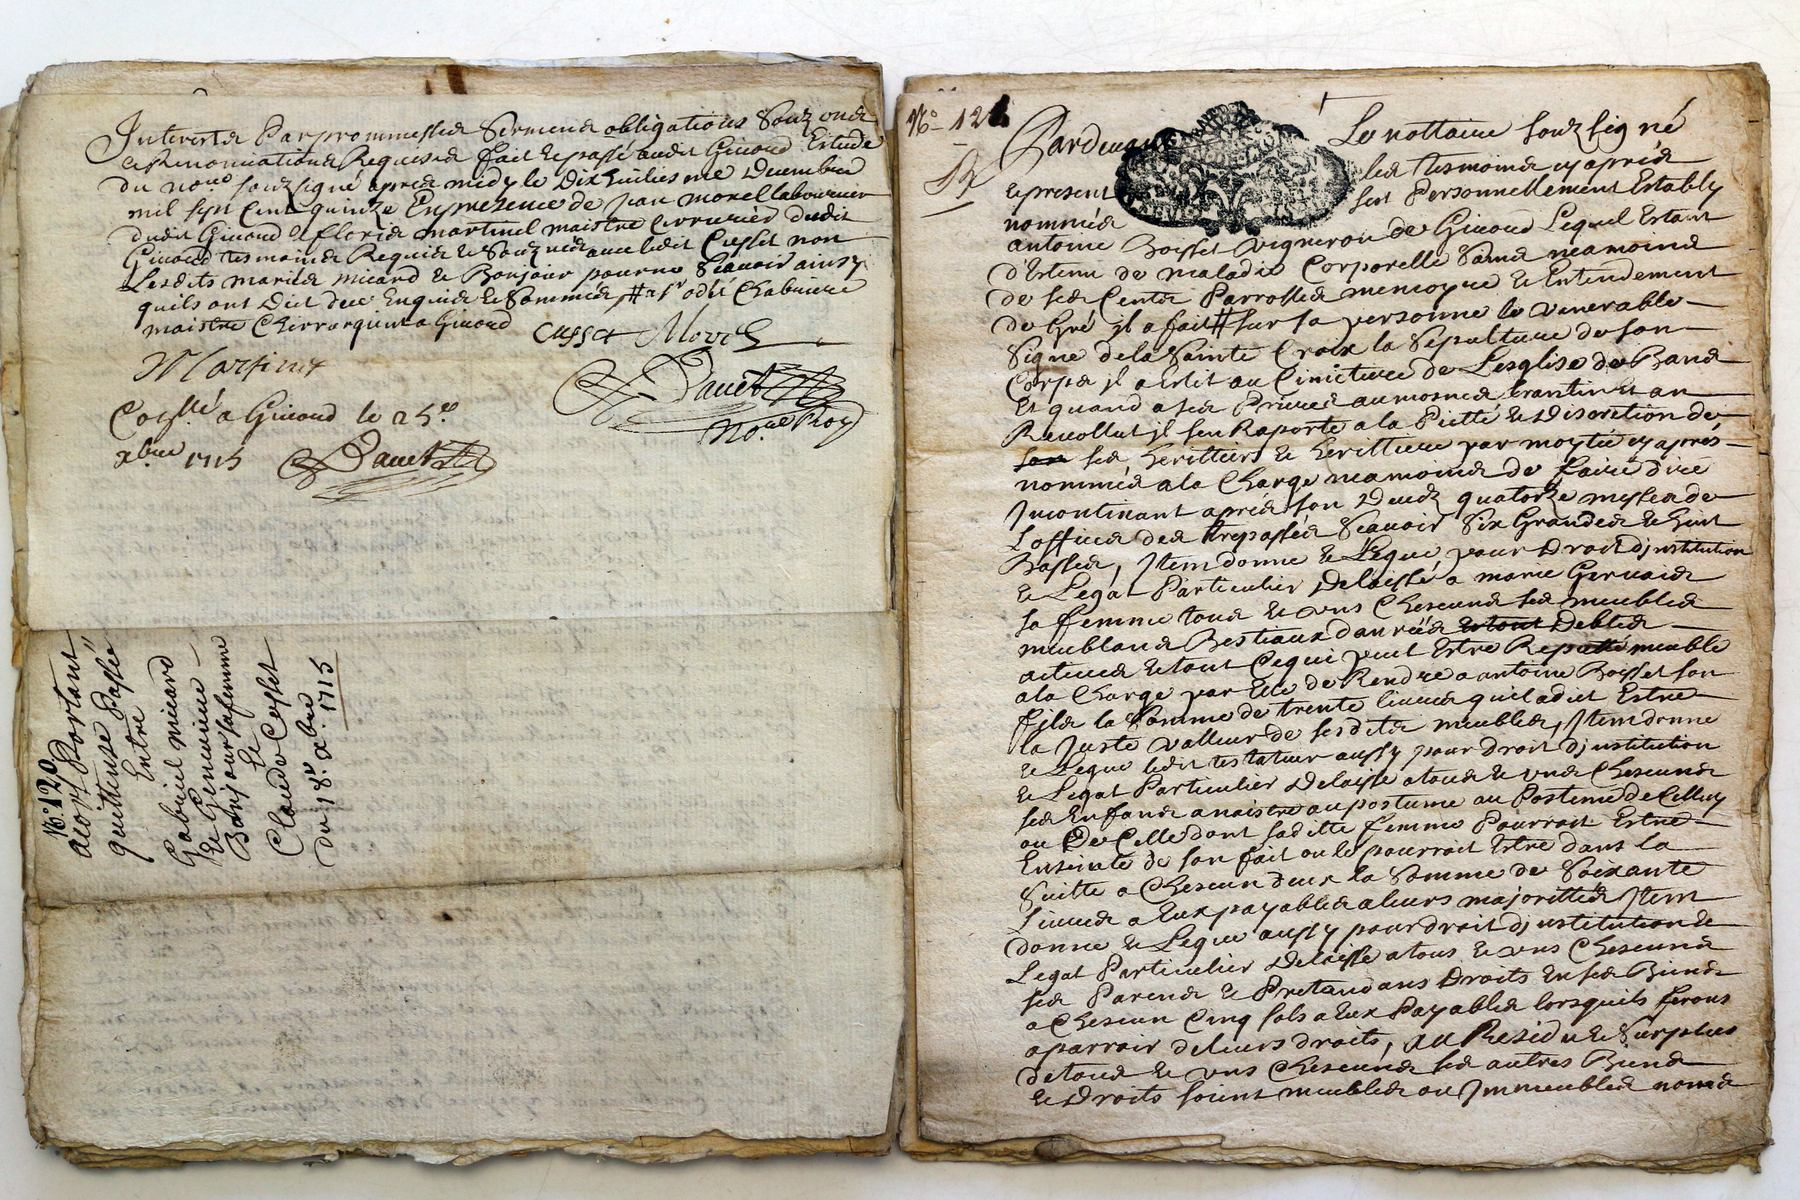 Interestz Par prommesses Sermens obligations Souz vnes
et Renonciations Requises fait et passé audit Giuord Estude
du no.re souz signé aprés midy le Dix huitiesme Decembre
mil sept Cent quinze En presence de Jean morel laboureur
dudit Giuord & floris martinel maistre Cerrurier dudit
Giuord tesmoins Requis et Souz nés auec ledit Cusset non
Lesdits mariés micard et Bonjour pour ne Scauoir ainsy
quils ont Dict de ce Enquis et Sommés # & s.r odet Chabuere
maistre Chirurgien a Giuord
Cusset Morel
Martinel
Dauet
no.re Roy
Con.llé a Giuord le 25.e
xbre 1715
Dauet
N.o 120
acort Portant
quittense Passée
Entre
Gabriel micard
Et Geneuiue
Bonjour sa femme
Et
Claude Cosset
du 18.e xbre 1715
N.o 121
Pardeuant Le nottaire souz signé
& present les tesmoins cy aprés
nommés fut Personnellement Estably
antoine Boisset vigneron de Giuord Lequel Estant
d'Estenu de maladie Corporelle Sains neamoins
de ses Cents Parrolles memoyre & Entendement
de Gré il a fait # sur sa personne le venerable
Signe de la Sainte Croix la Sepulture de son
Corps il a Eslit au Cimetiere de Lesglise de Bans
Et quand a ses Prieres aumosnes Luminaire an
Reuollut il sen Raporte a la Pietté & Discretion de
son ses heritiers & heritiere par moytié cy aprés
nommés a la Charge neamoins de faire dire
Incontinant aprés son Decedz quatorze messes de
Loffice des trepassés Scauoir Six Grandes & huit
Basses, Item donne & Legue pour Droit dinstitution
& Legat Particulier Delaissé a marie Geruais
sa femme tous & vns Chescuns ses meubles
meublans Bestiaux danrées et tout Debtes
actiues & tout Cequi peut Estre Reputté meuble
a la Charge par Elle de Rendre a antoine Boisset son
fils la Somme de trente liures quil a dict Estre
la Juste valleur de sesdits meubles, Item donne
& Legue ledit testateur aussy pour droit dinstitution
& Legat Particulier Delaisse a tous & vns Chescuns
ses Enfans a naistre au postume ou Postume de Celluy
ou De Celle dont sa ditte femme Pourroit Estre
Enseinte de son fait ou le pourroit Estre dans la
Suitte a Chescun deux la Somme de Soixante
Liures a Eux payables a leurs majorittés Item
donne & Legue aussy pour droit dinstitution &
Legat Particulier Delaisse a tous & vns Chescuns
ses Parens & Pretandans Droits En ses Biens
a Chescun Cinq sols a Eux Payables lorsquils feront
aparroir de leurs droits, au Residu & Surplus
de tous & vns Chescuns ses autres Biens
& Droits soient meubles ou Immeubles noms